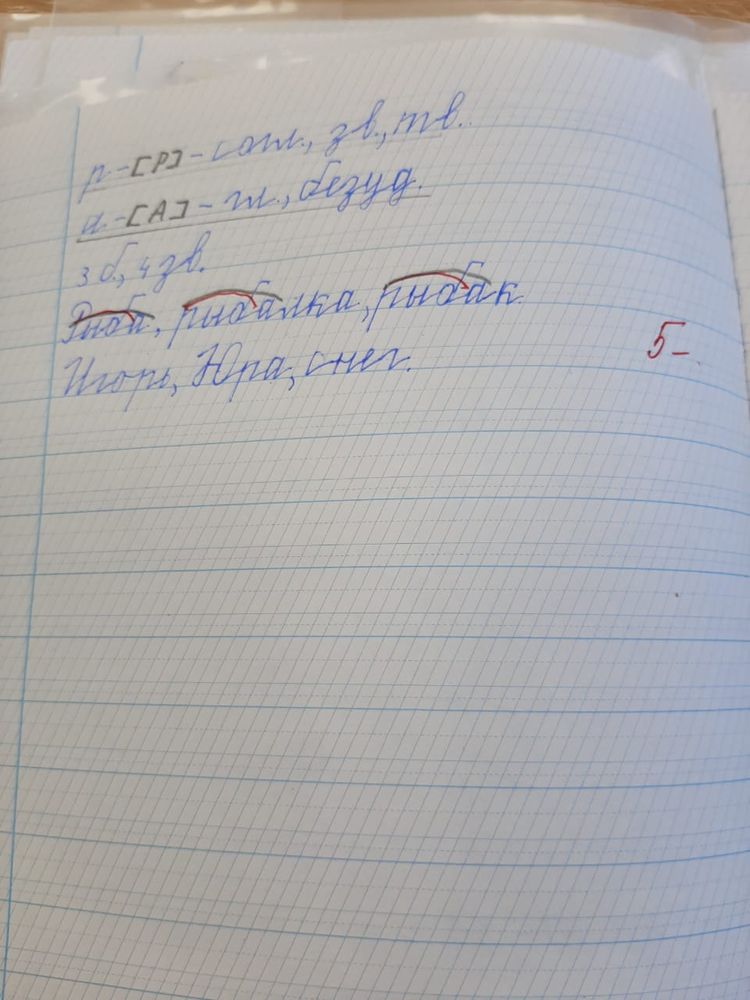 р-[Р]-согл., зв., тв.
а-[А]-гл., безуд.
3 б., 4 зв.
Рыба, рыбалка, рыбак.
Игорь, Юра, снег.
5-